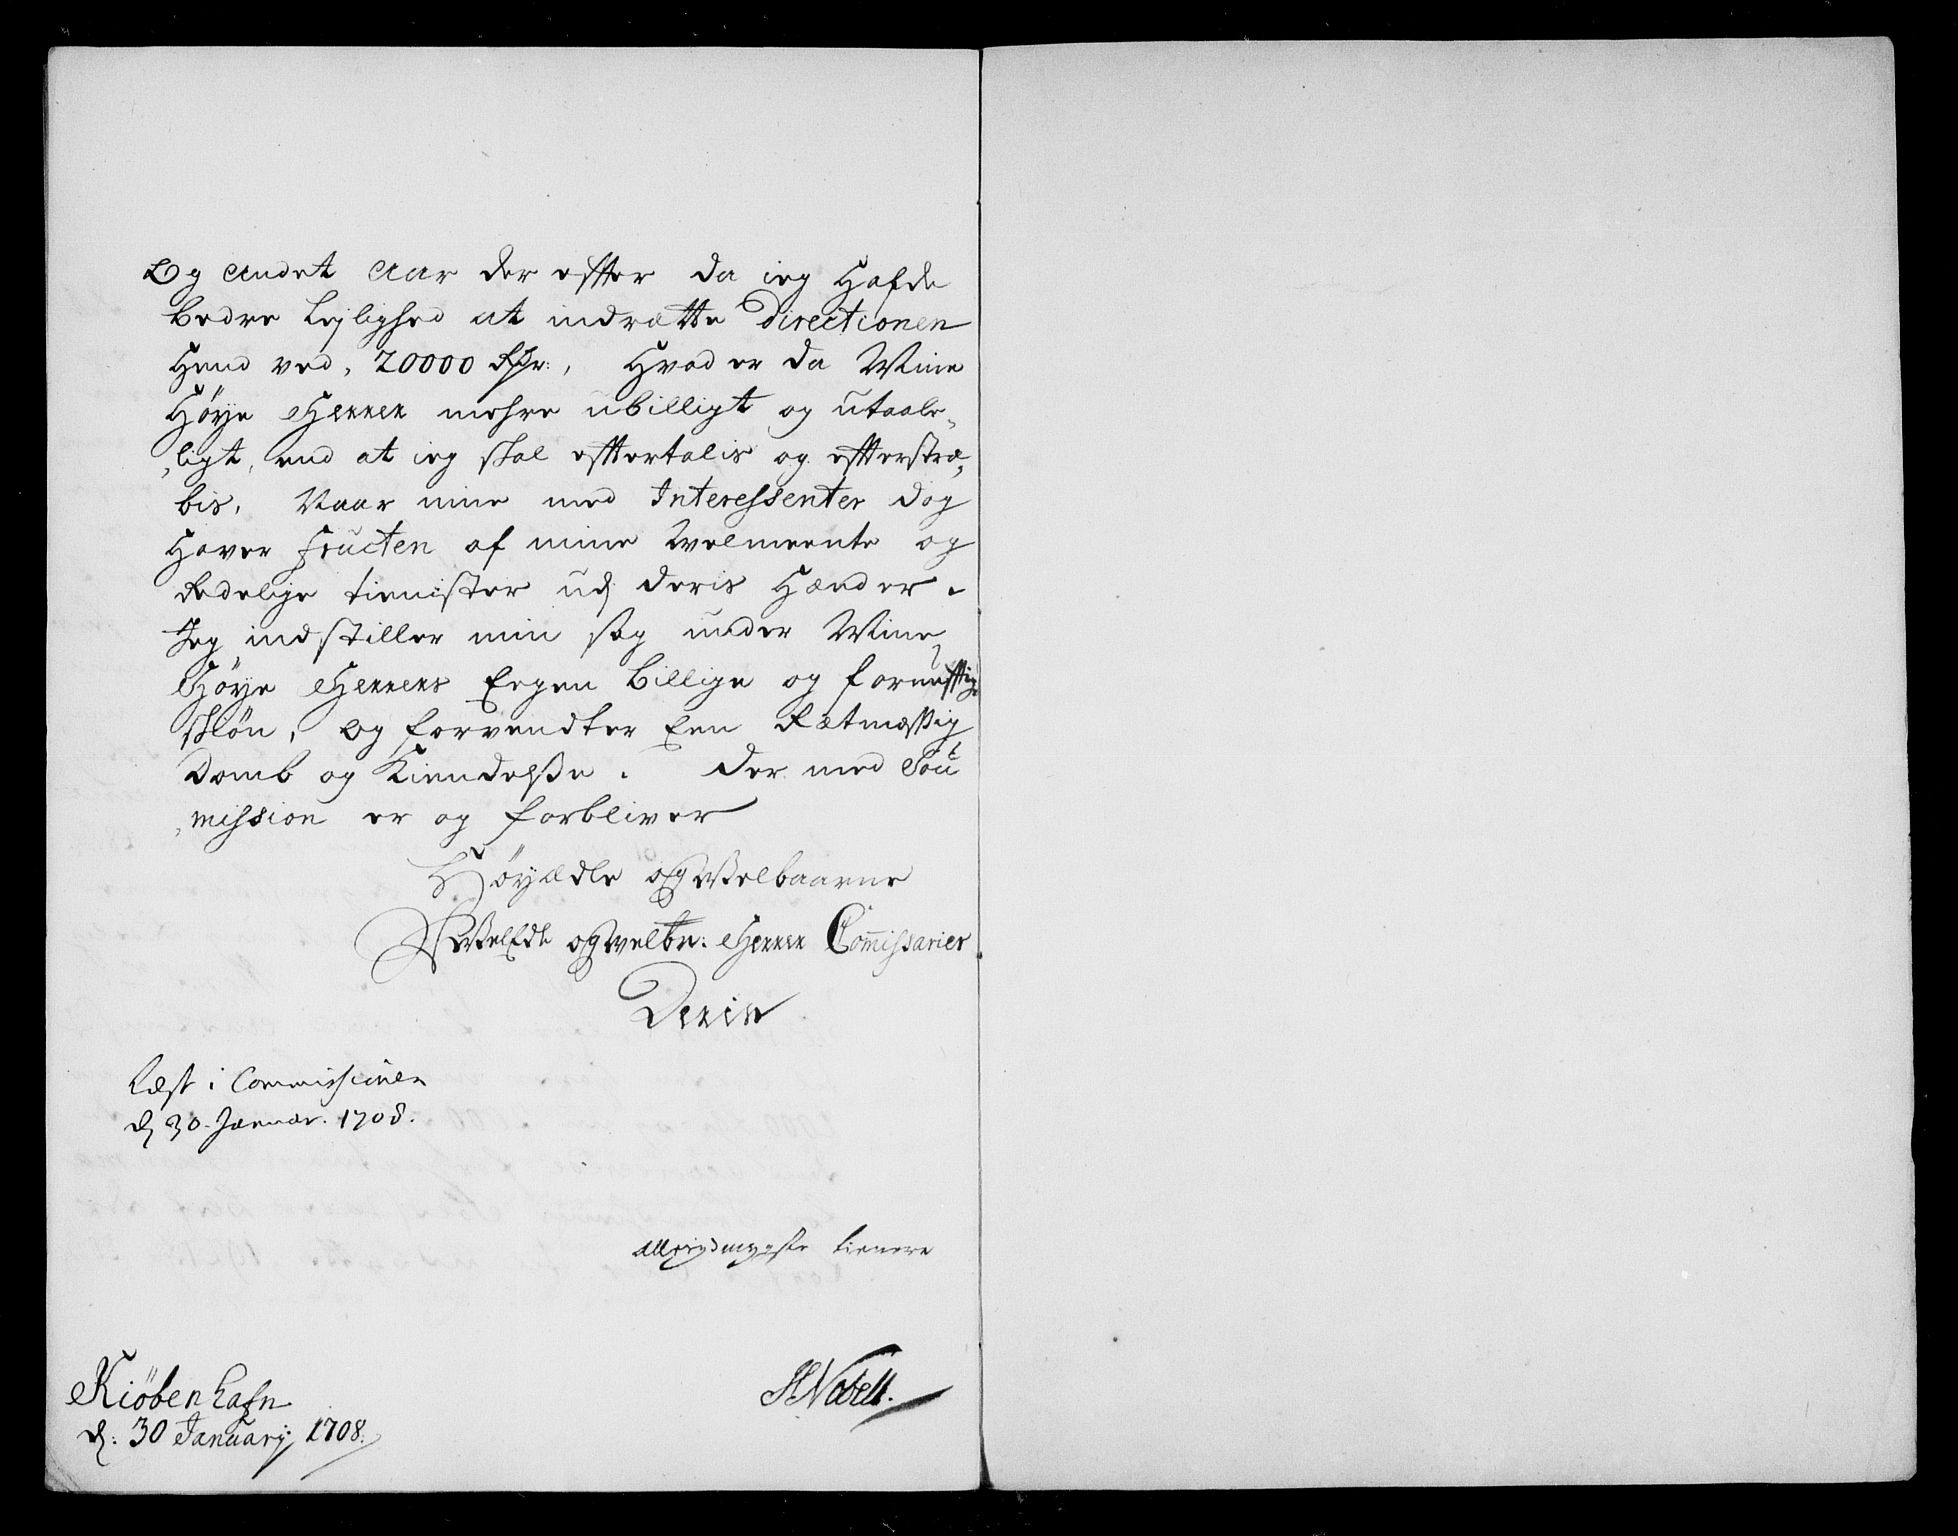 Og andet Aar der effter da ieg Hafde
bedre Lejlighed at indrætte Directionen
Hend ved, 20000 Rdr:, Hvad er da Mine
Høye Herrer mehre ubilligt og utaale„
„ligt, end at ieg skal efftertalis og effterstræ„
bis, Naar mine med Interessenter dog
Haver Fructen af mine Welmeente og
Redelige tienister udj deris Hænder.
Jeg indstiller min sag under Mine
Høye Herrers Eegen billige og fornufftig
skiøn, og forvendter Een Rætmæssig
Domb og Kiendelsse. Der med Sou
„mission er og forbliver
Høyædle og Welbaarne
WelEdle og velbr: Herrer Commissarier
Deris
Læst i Commissionen
dj 30. Januar. 1708.
allerydmygste tienere
Kiöbenhafn
d: 30 January 1708.